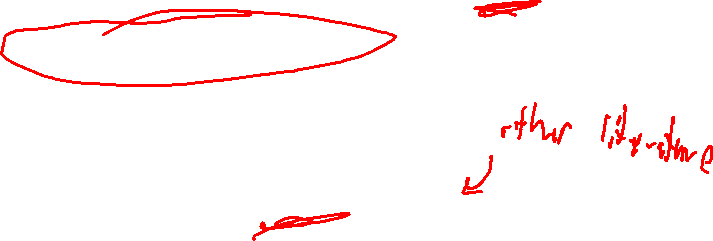 other literature